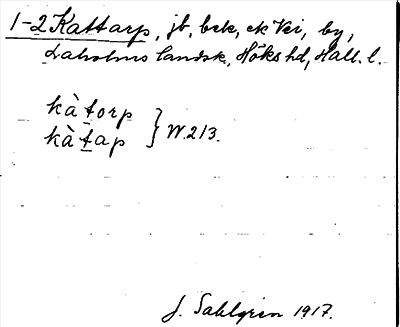 1-2 Kattarp, jb, bek, ek Vei, by,
Laholms landsk, Höks hd, Hall. l.
kàt̠orp
kàt̠ap } W. 213.
J. Sahlgren 1917.